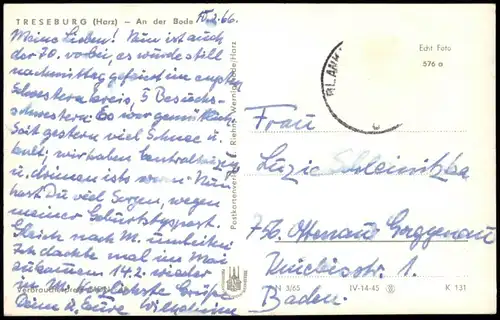 TRESEBURG (Harz) — An der Bode
10.2.66.
Meine Lieben! Nun ist auch
der 70. vorbei, es wurde still
nachmittag gefeiert im engsten
Schwesternkreis, 5 Besuchs-
schwestern. Es war gemütlich
Seit gestern viel Schnee u.
kalt, wir haben Centralheizg.
u. drinnen ists warm. Nun
hast Du viel Sorgen, wegen
meiner Geburtstagspost.
Gleich nach M.
Ich dachte mal im Mai
14.2. wieder
in M. Herzlichste Grüße
Deine u. Eure Wilhelmine
Verbraucherpreis
Postkartenverlag E. Riehn, Wernigerode/Harz
BLANK
Echt Foto
576 a
Frau
Luzie Schleinitz
756. Ottenau Gaggenau
1.
Baden.
N 3/65 IV-14-45 K 131